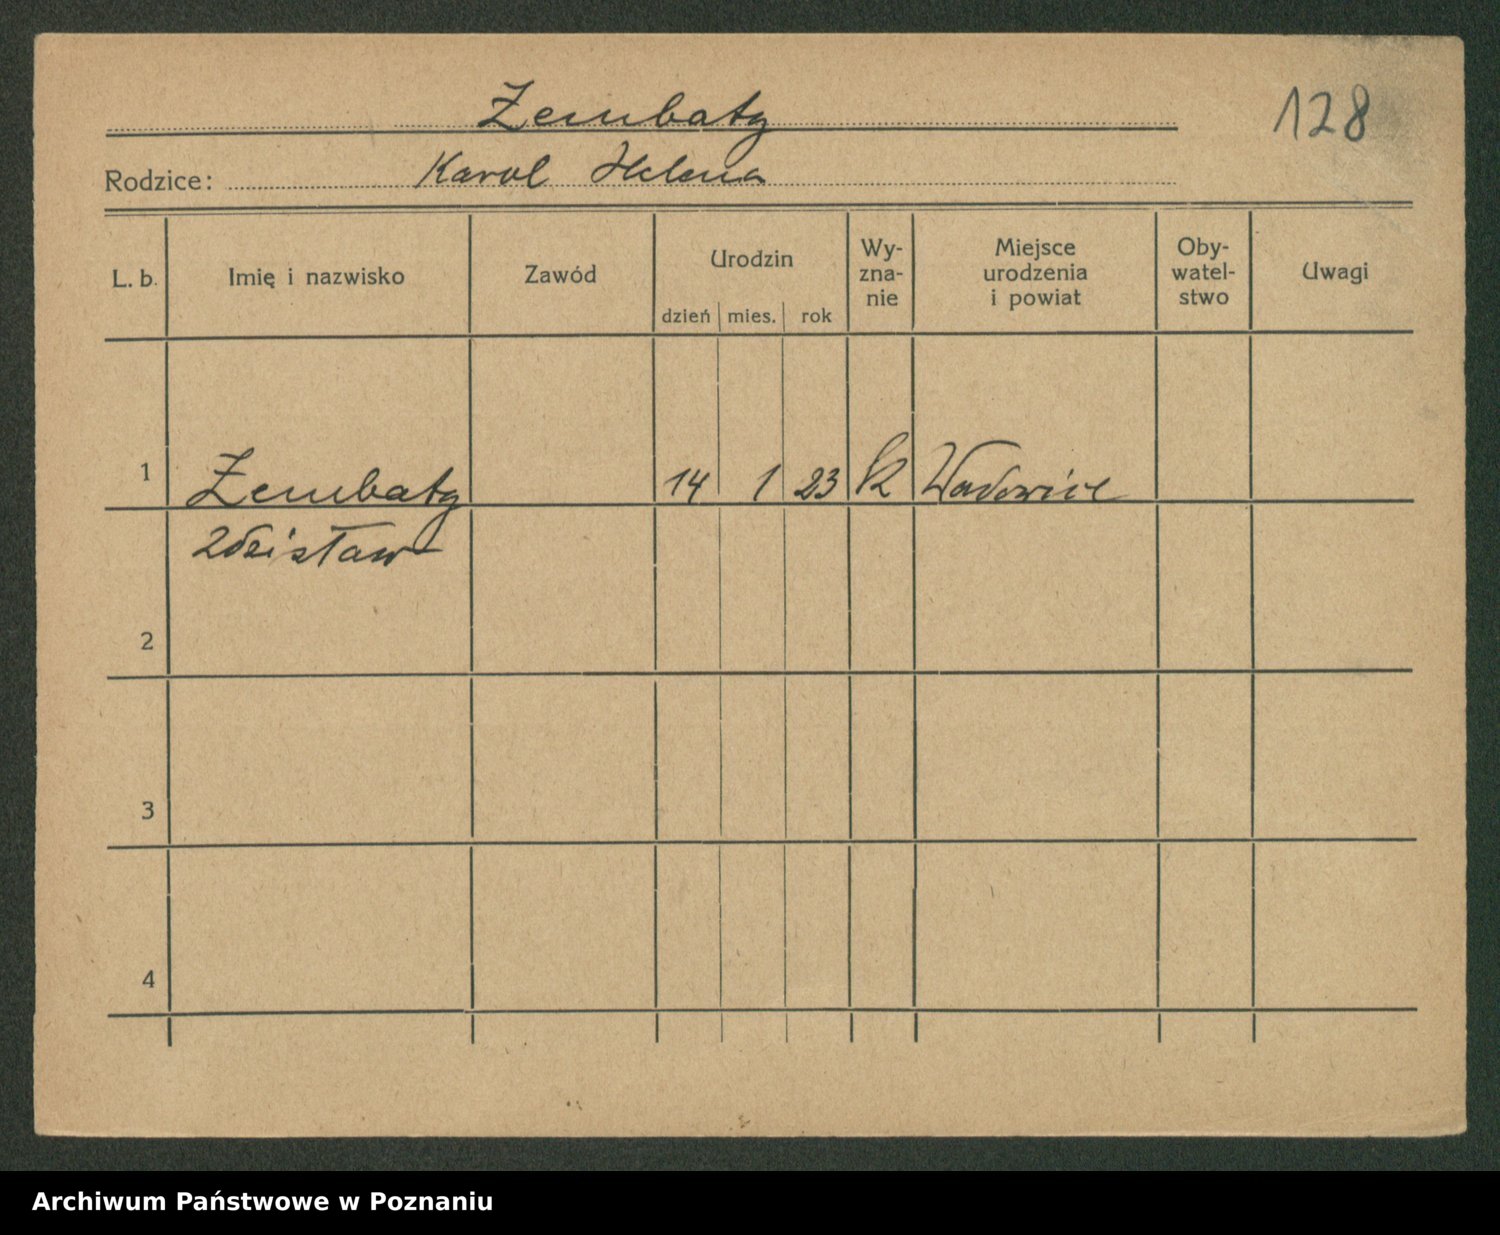 Zembaty
128
Rodzice: Karol Helena
L. b. Imię i nazwisko Zawód Urodzin dzień mies. rok Wy-zna-nie Miejsce urodzenia i powiat Oby-watel-stwo Uwagi
1 Zembaty 14 1 23 k Wadowice
Zdzisław
2
3
4
Archiwum Państwowe w Poznaniu